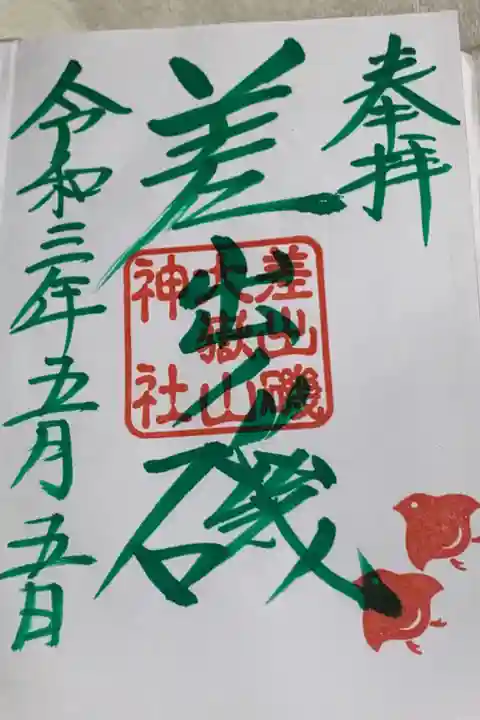 奉拝
差出の磯
差出磯
大嶽山
神社
令和三年五月五日